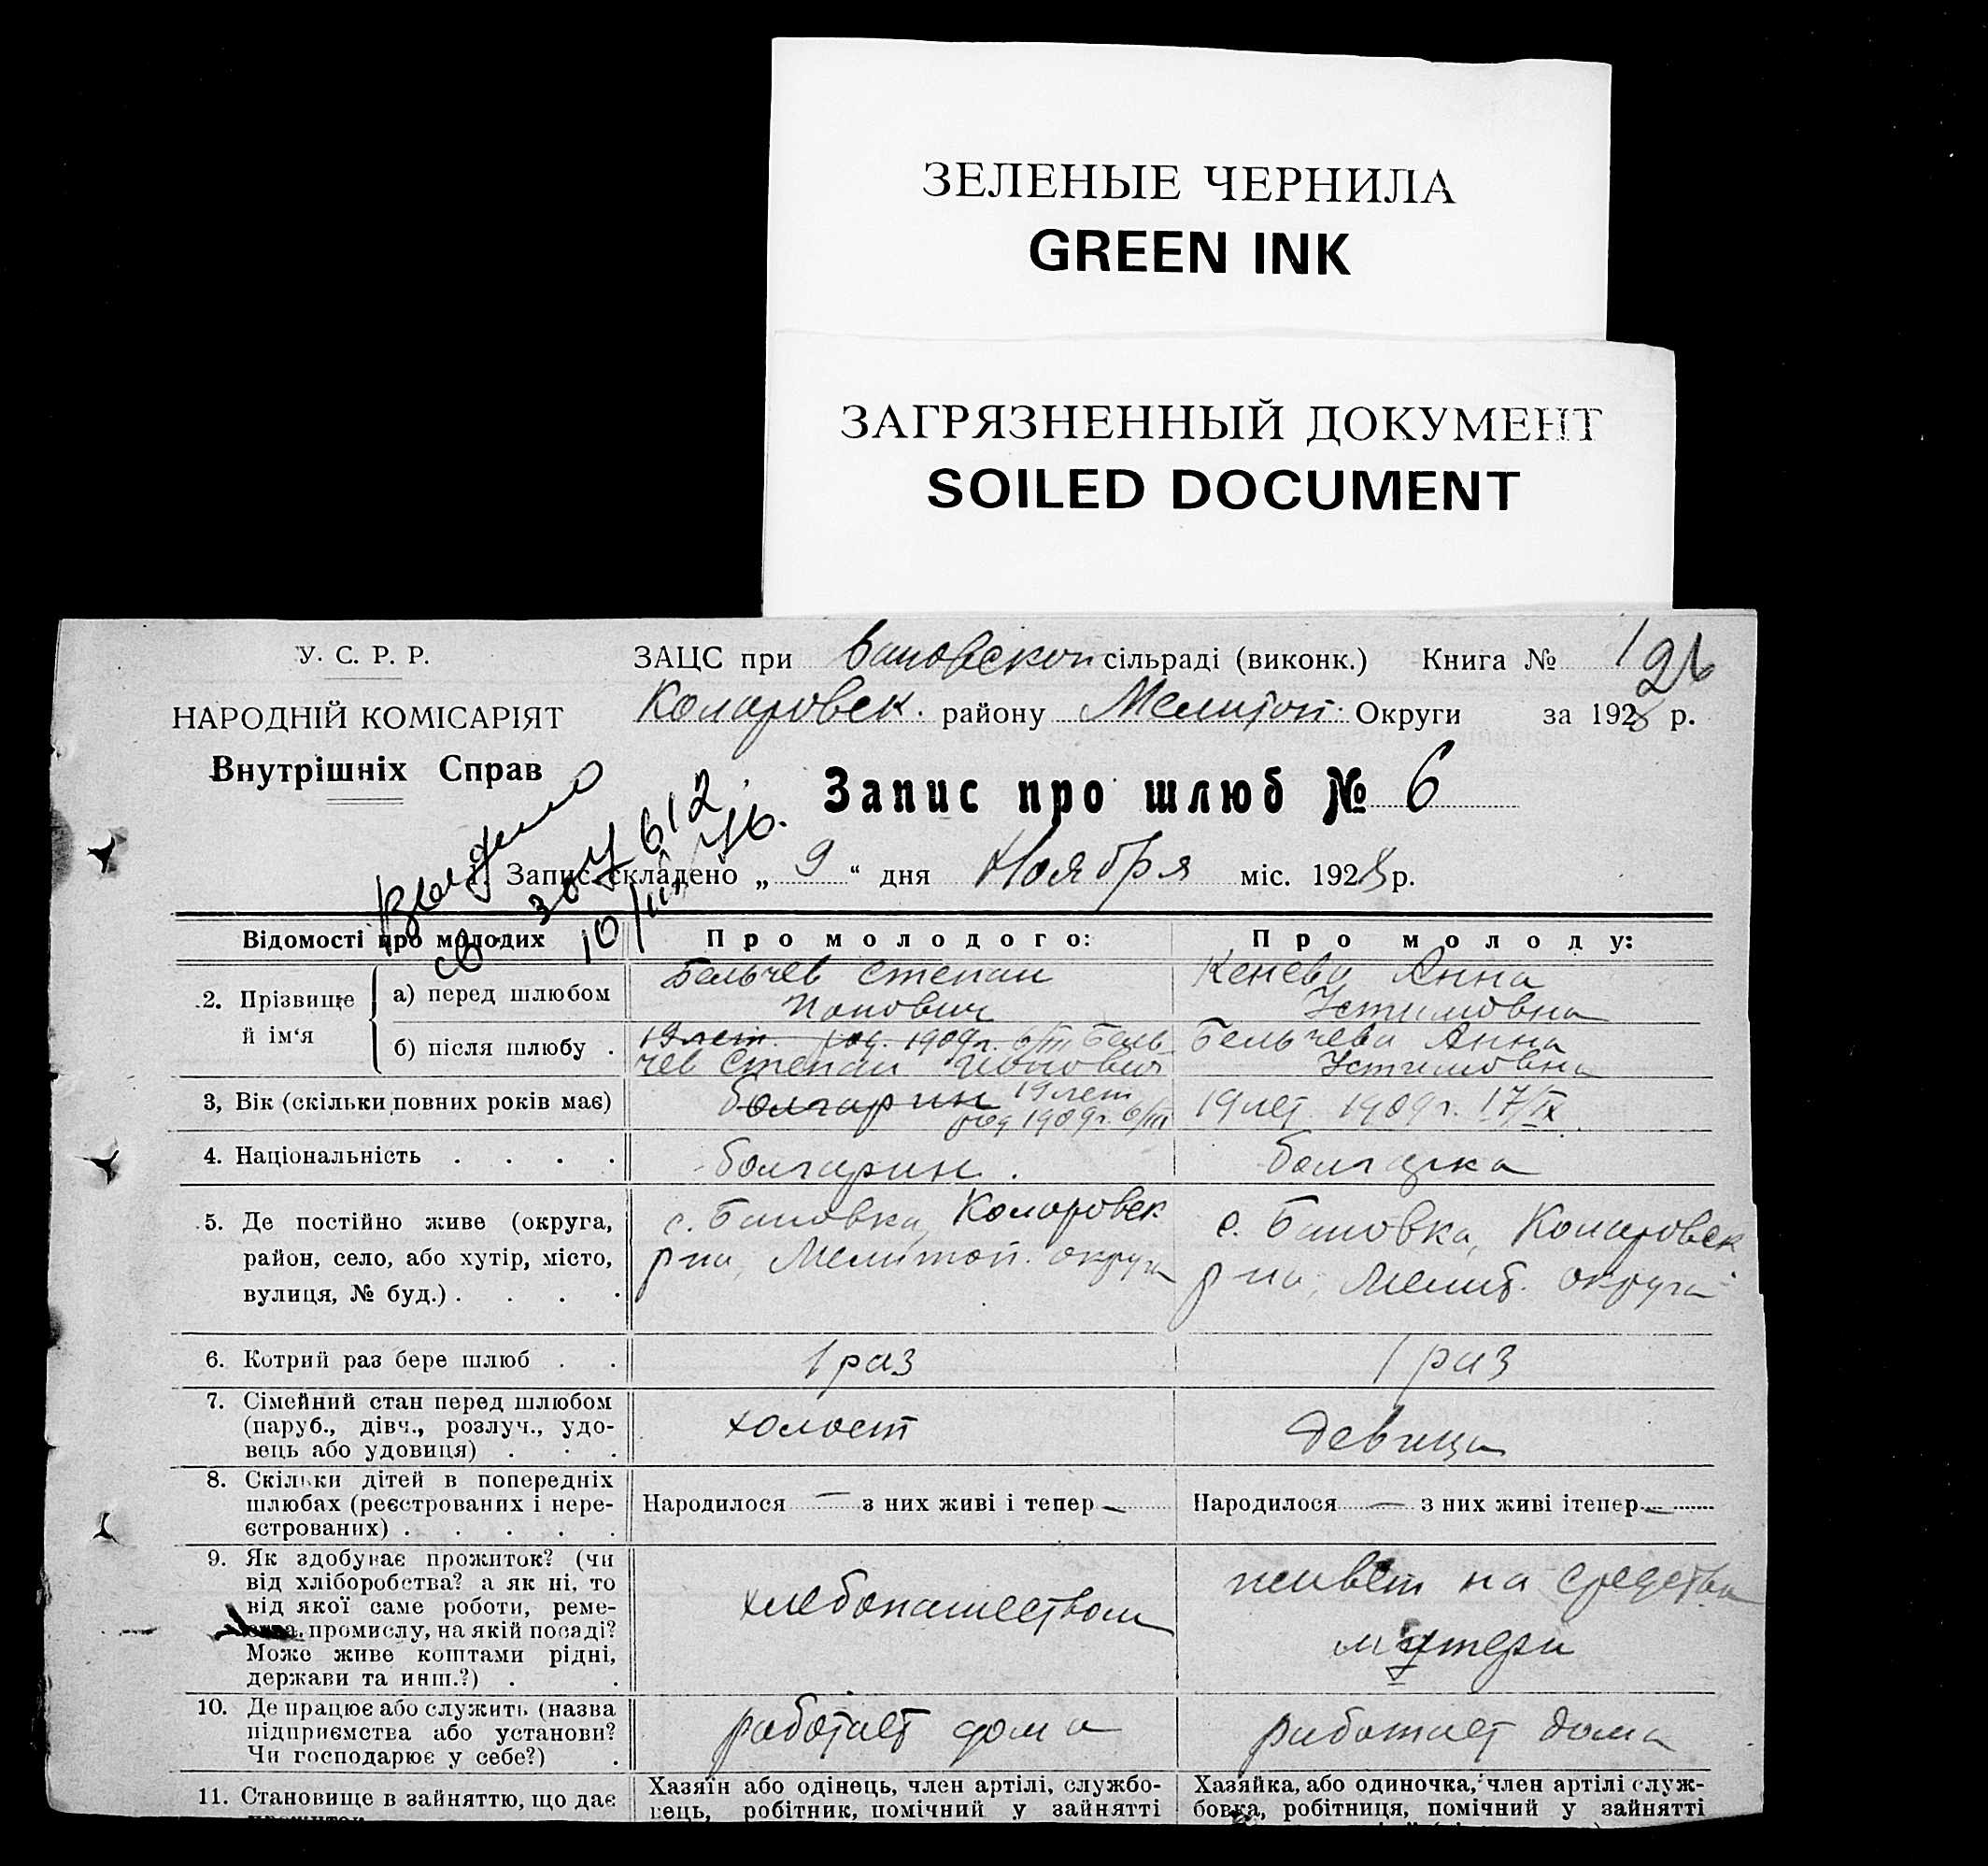 ЗЕЛЕНЫЕ ЧЕРНИЛА
GREEN INK
ЗАГРЯЗНЕННЫЙ ДОКУМЕНТ
SOILED DOCUMENT
У. С. Р. Р.
НАРОДНІЙ КОМІСАРІЯТ
Внутрішніх Справ
ЗАЦС при Бановской сільраді (виконк.) Книга № 1
Коларовск. району Мелитоп. Округи за 1928 р.
Запис про шлюб № 6
Выдано
св. 612
1. Запис складено „ 9 “ дня Ноября міс. 1928 р.
Відомості про молодих Про молодого: Про молоду:
2. Прізвище й ім‘я
а) перед шлюбом Бельчев Степан Кенева Анна
Попович Устимовна
б) після шлюбу . 19 лет. род. 1909 г. 6/III Бель- Бельчева Анна
чев Степан Попович Устимовна
3, Вік (скільки повних років має) болгарин 19 лет 19 лет 1909 г. 17/IX.
род 1909 г. 6/III
4. Національність . . . . болгарин . болгарка
5. Де постійно живе (округа, с. Бановка, Коларовск с. Бановка, Коларовск
район, село, або хутір, місто, р-на, Мелитоп. округа р-на, Мелит. округа
вулиця, № буд.) . . . .
6. Котрий раз бере шлюб . . 1 раз 1 раз
7. Сімейний стан перед шлюбом
(паруб., дівч., розлуч., удо- холост девица
вець або удовиця) . . .
8. Скільки дітей в попередніх
шлюбах (реєстрованих і нере- Народилося — з них живі і тепер — Народилося — з них живі ітепер —
єстрованих) . . . . .
9. Як здобуває прожиток? (чи
від хліборобства? а як ні, то живет на средства
від якої саме роботи, реме- хлебопашеством
промислу, на якій посаді? матери
Може живе коштами рідні,
держави та инш.?) . .
10. Де працює або служить (назва
підприємства або установи? работает дома работает дома
Чи господарює у себе?) .
11. Становище в зайняттю, що дає Хазяїн або одінець, член артілі, службо- Хазяйка, або одиночка, член артілі служ-
прожиток вець, робітник, помічний у зайнятті бовка, робітниця, помічний у зайнятті